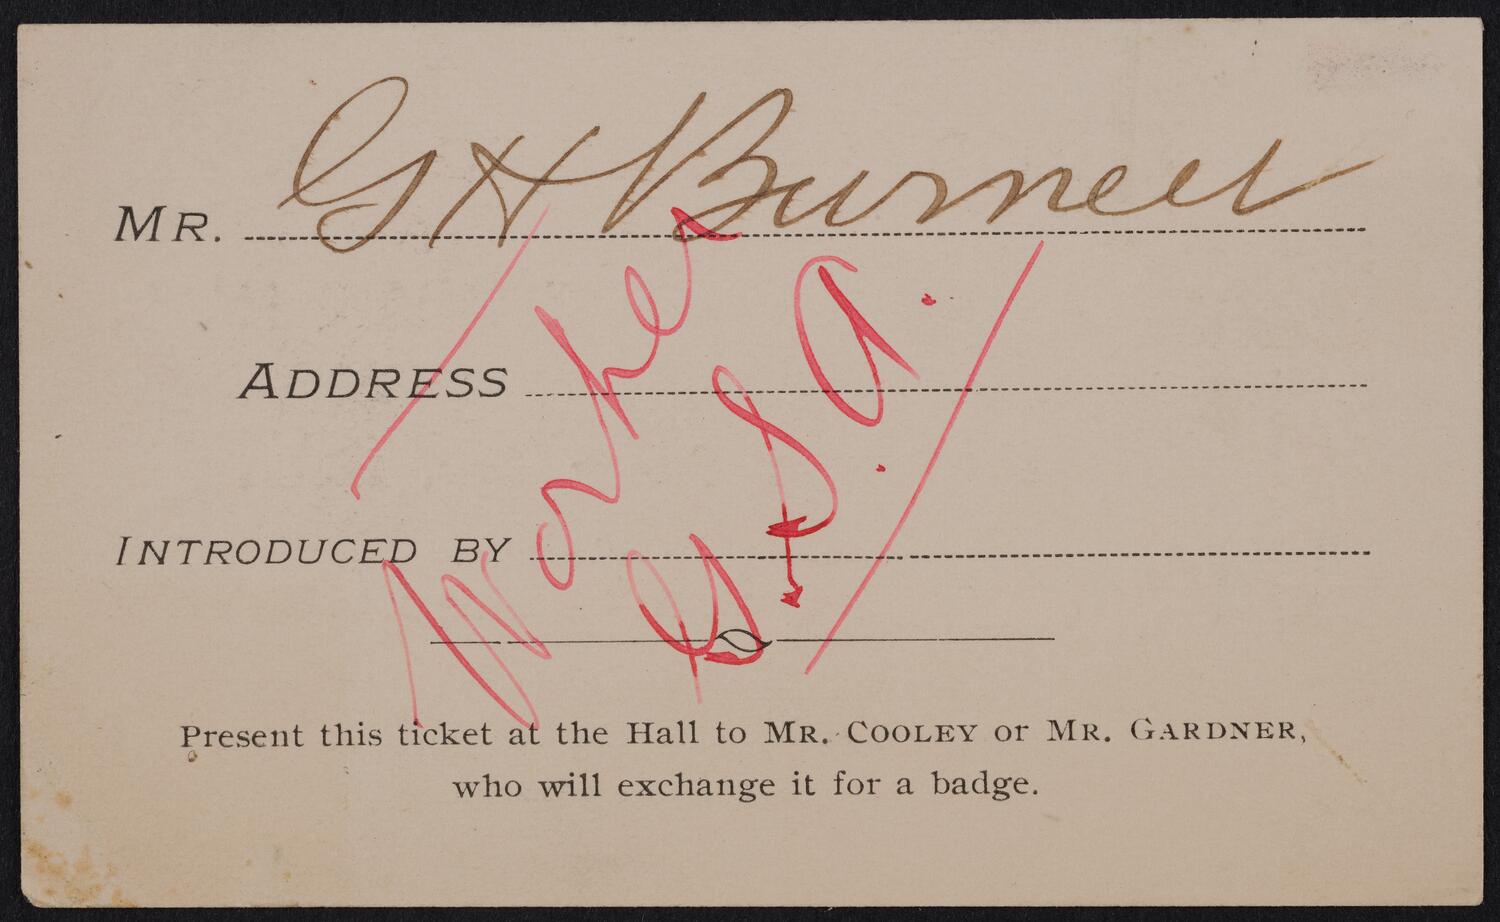 MR. G H Burnell
ADDRESS
INTRODUCED BY
Worker
G. S. A.
Present this ticket at the Hall to MR. COOLEY or MR. GARDNER,
who will exchange it for a badge.